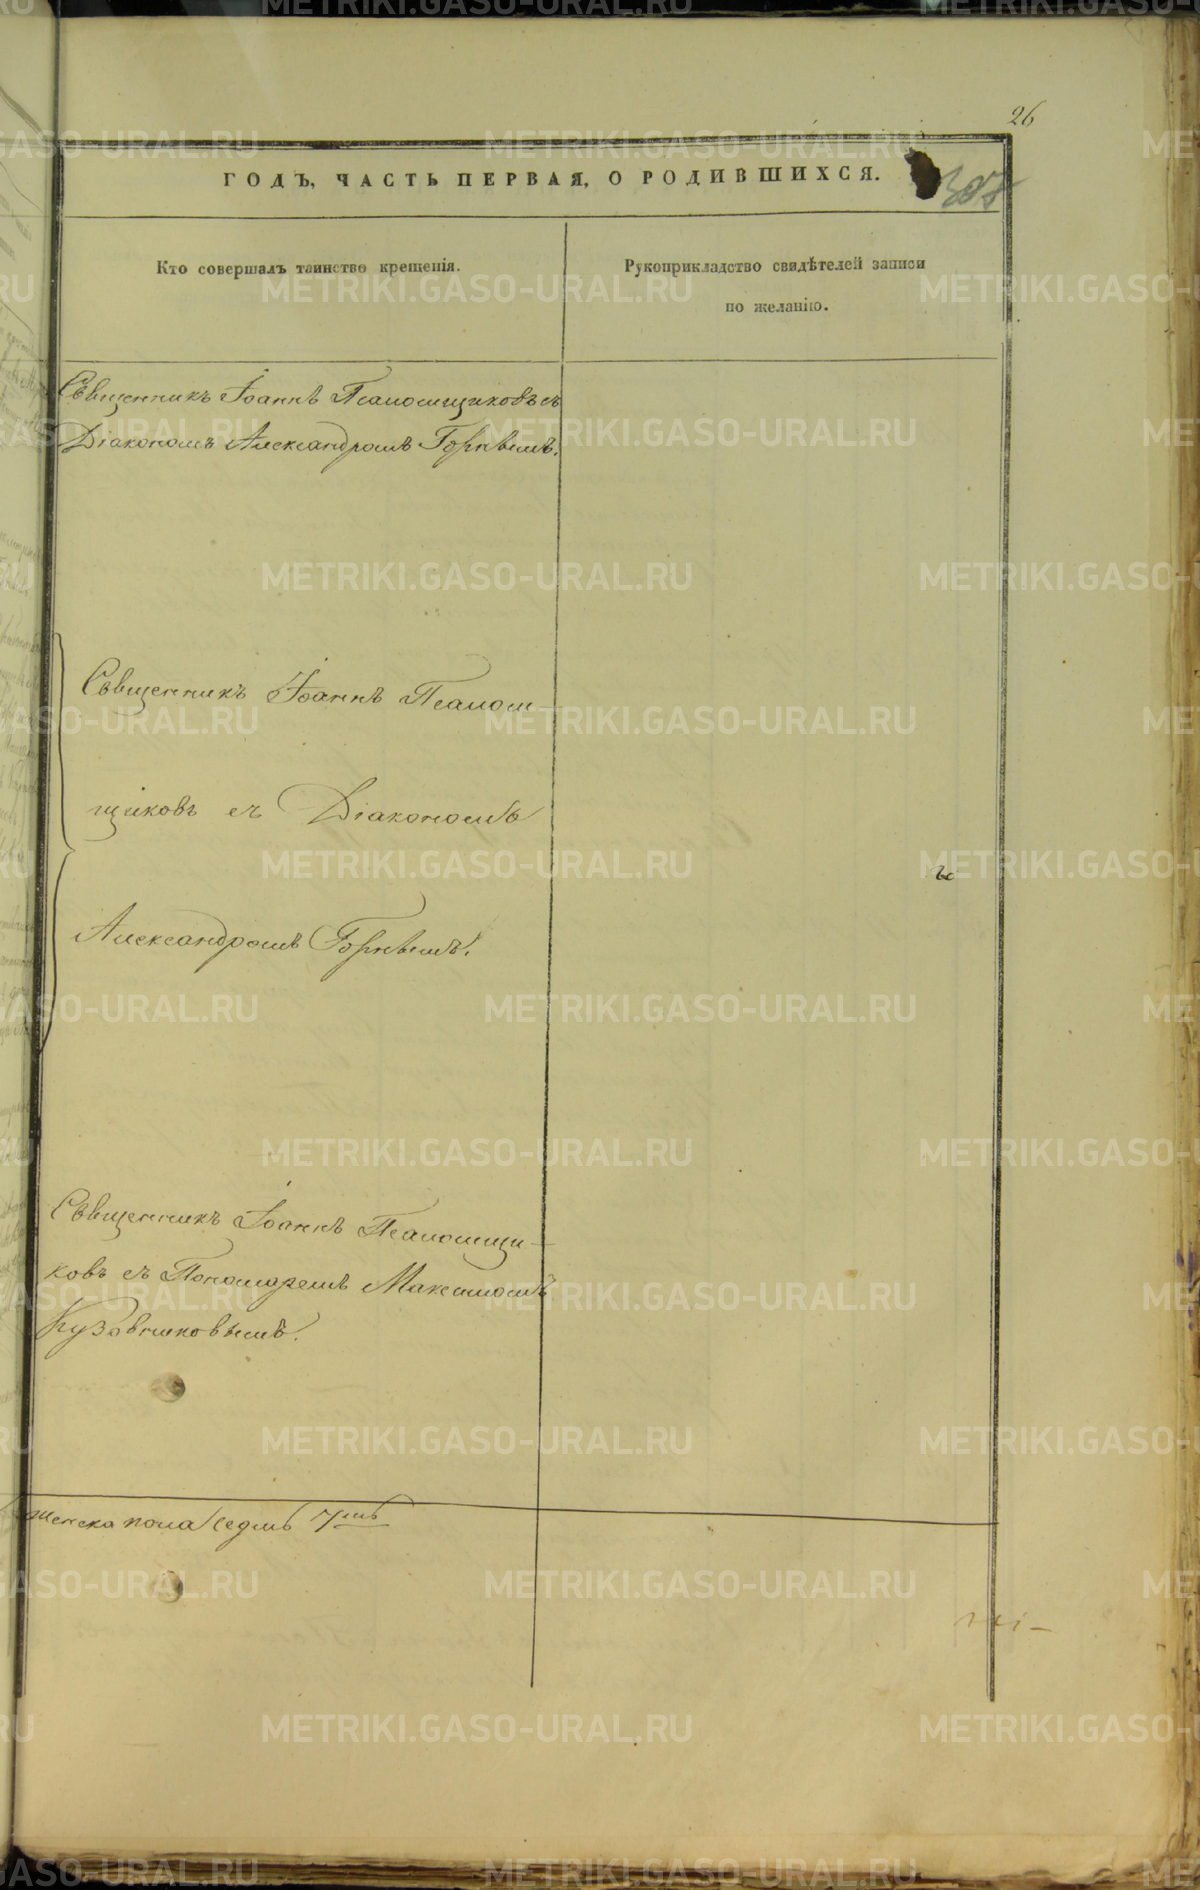 26
ГОДЪ, ЧАСТЬ ПЕРВАЯ, О РОДИВШИХСЯ.
Кто совершалъ таинство крещенія.
Рукоприкладство свидѣтелей записи
по желанію.
Священникъ Іоаннъ Псаломщиковъ съ
Діакономъ Александромъ Горнымъ.
Священникъ Іоаннъ Псалом-
щиковъ съ Діакономъ
Александромъ Горнымъ.
Священникъ Іоаннъ Псаломщи-
ковъ съ Пономаремъ Максимомъ
Кузовниковымъ.
женска пола седмь 7мь
METRIKI.GASO-URAL.RU